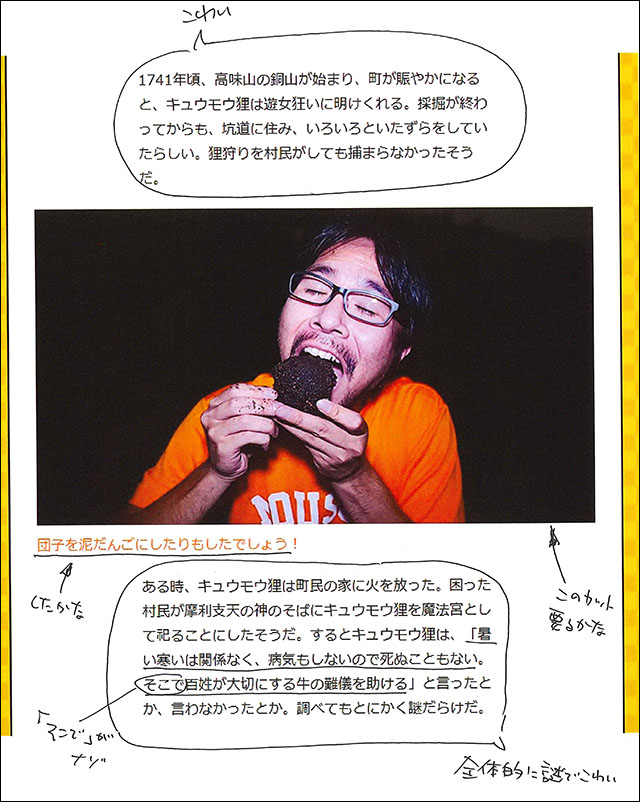 こわい
1741年頃、高味山の銅山が始まり、町が賑やかになる
と、キュウモウ狸は遊女狂いに明けくれる。採掘が終わ
ってからも、坑道に住み、いろいろといたずらをしてい
たらしい。狸狩りを村民がしても捕まらなかったそう
だ。
MOUS
団子を泥だんごにしたりもしたでしょう！
したかな
このカット
要るかな
ある時、キュウモウ狸は町民の家に火を放った。困った
村民が摩利支天の神のそばにキュウモウ狸を魔法宮とし
て祀ることにしたそうだ。するとキュウモウ狸は、「暑
い寒いは関係なく、病気もしないので死ぬこともない。
そこで百姓が大切にする牛の難儀を助ける」と言ったと
か、言わなかったとか。調べてもとにかく謎だらけだ。
「そこで」が
ナゾ
全体的に謎でこわい